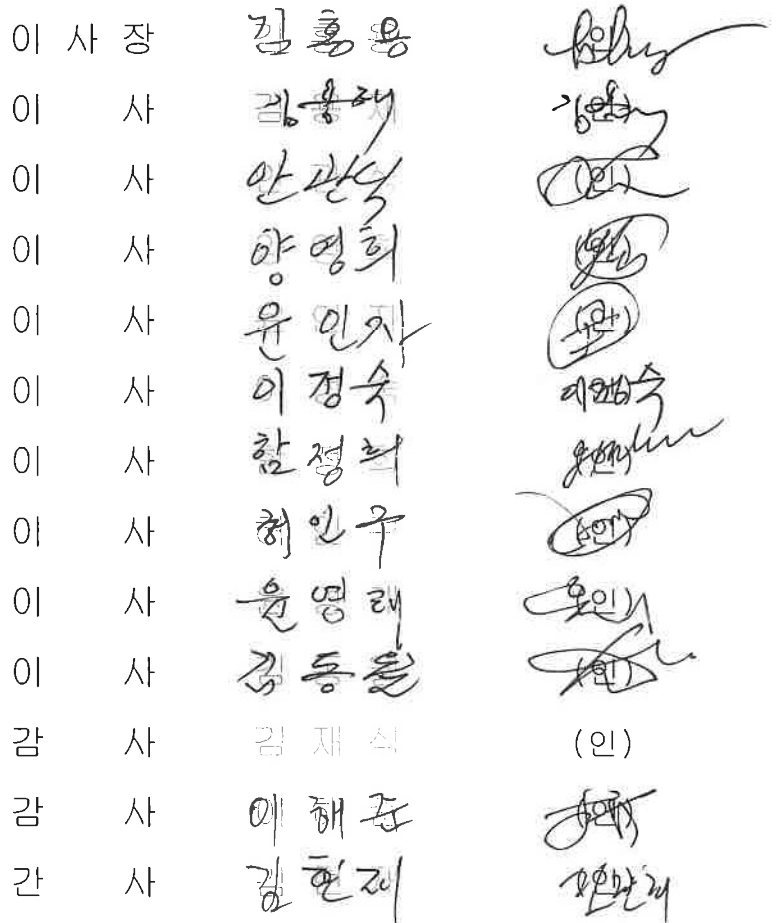 이 사 장 김 홍 용
이 사 김 용 래 (인)
이 사 안 관 식 (인)
이 사 양 영 희 (인)
이 사 윤 인 자 (인)
이 사 이 정 숙 이정숙 (인)
이 사 함 정 희 (인)
이 사 허 인 구 (인)
이 사 윤 영 래 (인)
이 사 김 동 율 (인)
감 사 김 재 식 (인)
감 사 이 해 준 (인)
간 사 김 현 재 (인)